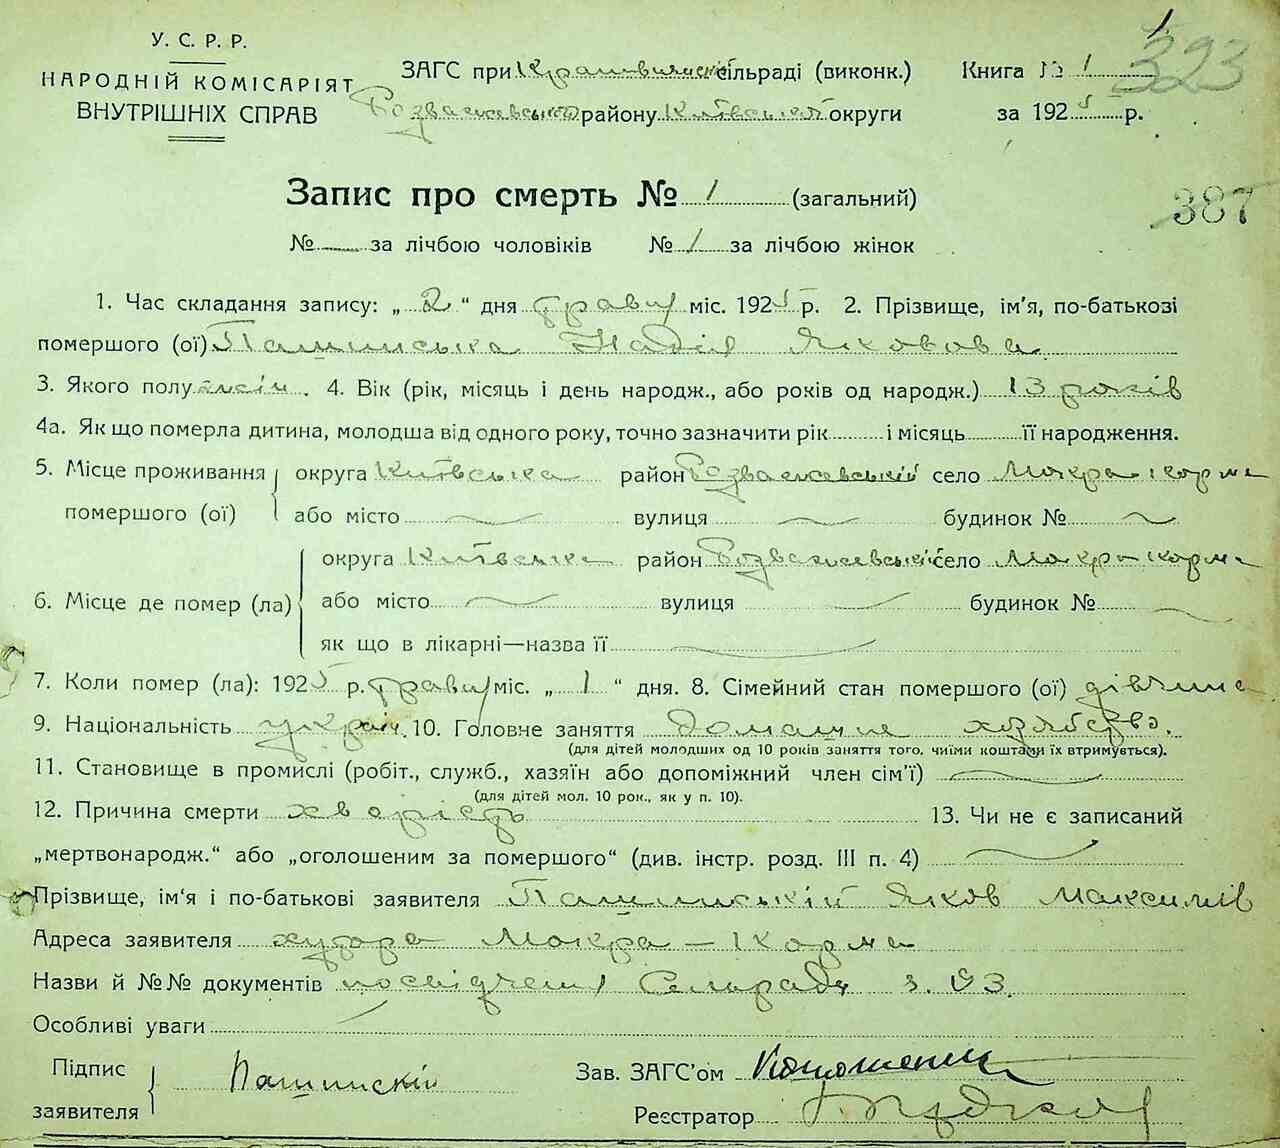 У. С. Р. Р.
НАРОДНІЙ КОМІСАРІЯТ
ВНУТРІШНІХ СПРАВ
ЗАГС при сільраді (виконк.) Книга № 1
району Київської округи за 1925 р.
323
Запис про смерть № 1 (загальний)
387
№ за лічбою чоловіків № 1 за лічбою жінок
1. Час складання запису: „ 2 “ дня травня міс. 1925 р. 2. Прізвище, ім'я, по-батькові
помершого (ої) Пашинська Надія Яковова
3. Якого полу жесін. 4. Вік (рік, місяць і день народж., або років од народж.) 13 років
4а. Як що померла дитина, молодша від одного року, точно зазначити рік і місяць її народження.
5. Місце проживання округа Київська район Розважевський село Мокра корма
помершого (ої) або місто вулиця будинок №
округа Київська район Розважевський село Мокра корма
6. Місце де помер (ла) або місто вулиця будинок №
як що в лікарні—назва її
7. Коли помер (ла): 1925 р. травня міс. „ 1 “ дня. 8. Сімейний стан помершого (ої) дівчина
9. Національність україн. 10. Головне заняття домашнє хозяйство.
(для дітей молодших од 10 років заняття того, чиїми коштами їх втримується).
11. Становище в промислі (робіт., служб., хазяїн або допоміжний член сім'ї)
(для дітей мол. 10 рок., як у п. 10).
12. Причина смерти хворість 13. Чи не є записаний
„мертвонародж.“ або „оголошеним за помершого“ (див. інстр. розд. III п. 4)
Прізвище, ім'я і по-батькові заявителя Пашинський Яков Максимів
Адреса заявителя хутора Мокра - Корма
Назви й №№ документів Сельради з. 93.
Особливі уваги
Підпис
заявителя Пашинскій
Зав. ЗАГС'ом
Реєстратор